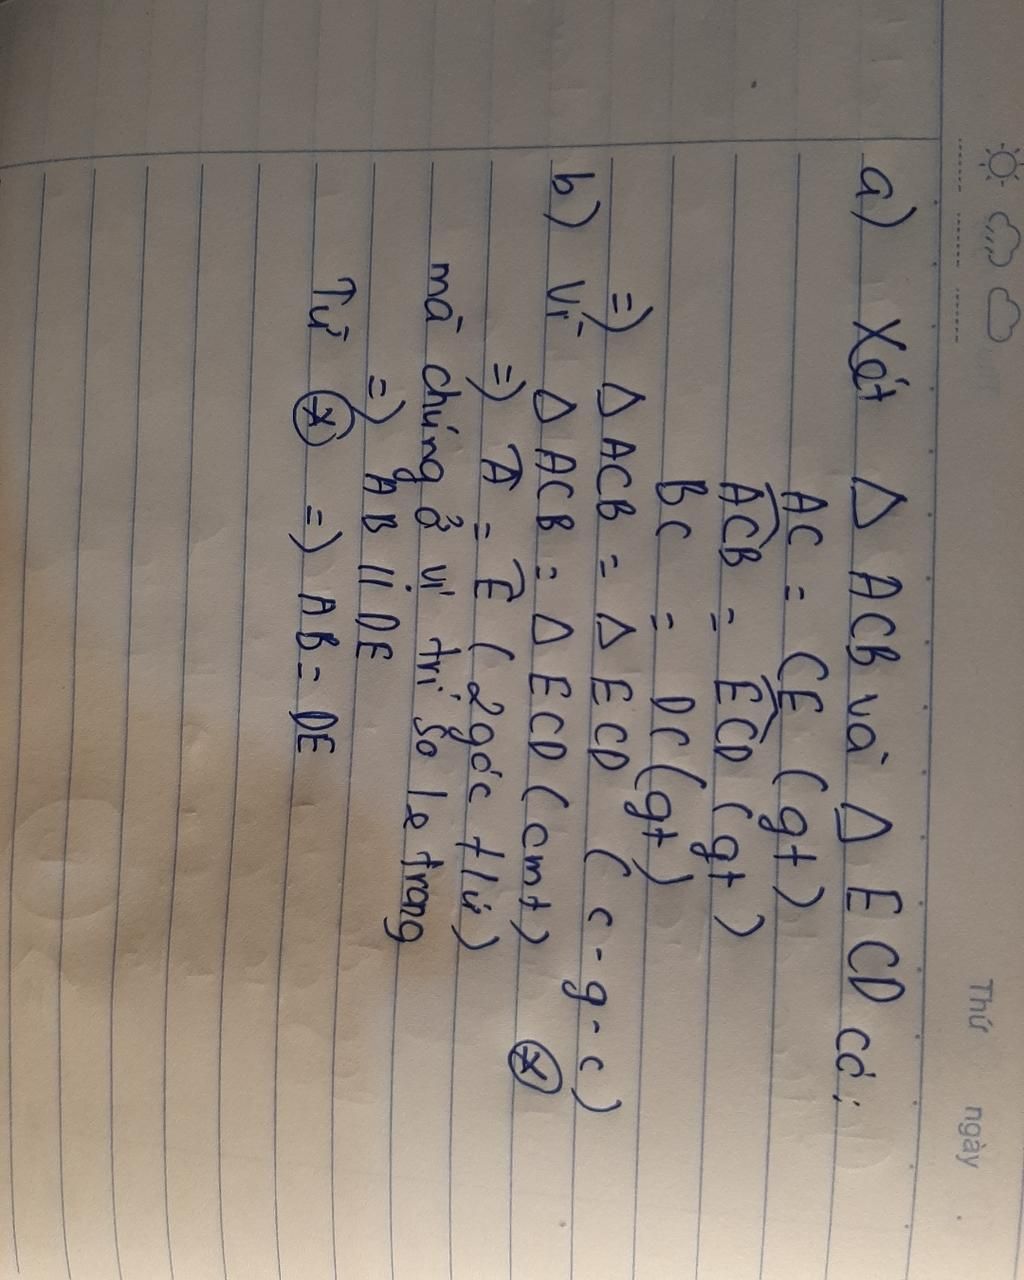 Thứ ngày
a) Xét Δ ACB và Δ ECD có:
AC = CE (gt)
\widehat{ACB} = \widehat{ECD} (gt)
BC = DC (gt)
=) Δ ACB = Δ ECD (c-g-c)
b) Vì Δ ACB = Δ ECD (cmt) (*)
=) \widehat{A} = \widehat{E} (2 góc t/ứ)
mà chúng ở vị trí so le trong
=) AB // DE
Từ (*) =) AB = DE